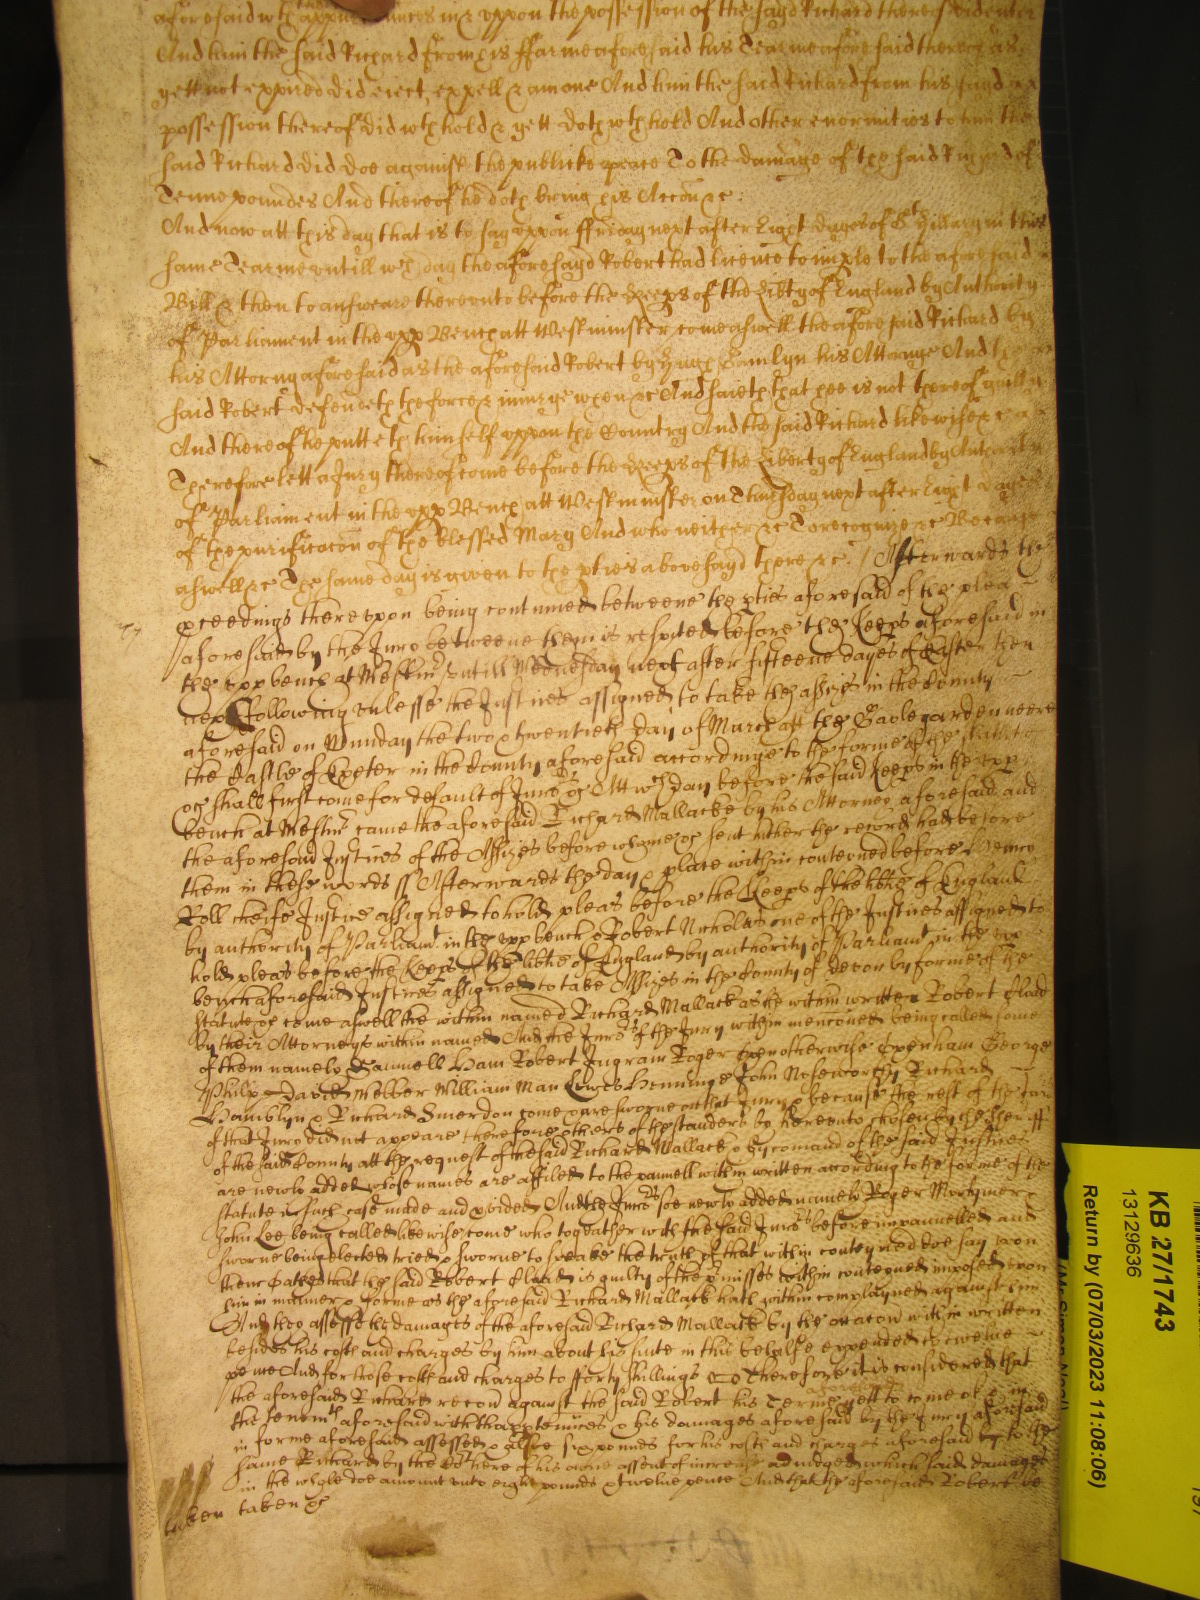 aforesaid wth thappurtenances in & uppon the possession of the sayd Richard thereof did enter
And him the said Richard from his ffarme aforesaid his Tearme aforesaid thereof as
yett not expired did eiect, expell & amove And him the said Richard from his sayd
possession thereof did wthhold & yett doth wthhold And other enormities to him the
said Richard did doe against the publicke peace To the damage of the said Richard of
Tenne poundes And thereof he doth bring his Accon &c
And now att this day that is to say uppon ffriday next after Eight dayes of St Hillary in this
same Tearme untill wch day the aforesayd Robert had licence to imple to the aforesaid
Bill & then to answeare thereunto before the Keeps of the Libty of England by Authority
of Parliament in the upp Bench att Westminster come aswell the aforesaid Richard by
his Attorny aforesaid as the aforesaid Robert by Hugh Hamlyn his Attorny And the
said Robert defendeth the force & iniurye when &c And saieth that hee is not thereof guilty
And thereof he putteth himself uppon the Country And the said Richard likewise &c
Therefore lett a Jury thereof come before the Keeps of the Liberty of England by Authority
of Parliament in the upp Bench att Westminster on Thursday next after Eight dayes
of the purificacon of the blessed Mary And who neither &c To recognize &c Because
aswell &c The same day is given to the pties abovesayd there &c / Afterwards the
pceedings thereupon being continued betweene the pties aforesaid of the plea
aforesaid by the Jury betweene them is respited before the Keeps aforesaid in
the upp bench at Westmr untill Wednesday next after fifteene dayes of Easter then
next following unlesse the Justices assigned to take the assizes in the County
aforesaid on Munday the two & twentieth day of March att the Gaole garden neere
the Castle of Exeter in the County aforesaid according to the forme of the statute
&c shall first come for default of Jurors &c Att wch day before the said Keeps in the upp
bench at Westmr came the aforesaid Richard Mallacke by his Attorney aforesaid and
the aforesaid Justices of the Assizes before whome &c sent hither the record had before
them in these words ss Afterwards the day & place within conteyned before Henry
Roll cheife Justice assigned to hold pleas before the Keeps of the libtie of England
by authority of Parliamt in the upp bench & Robert Nicholas one of the Justices assigned to
hold pleas before the Keeps of the libtie of England by authority of Parliamt in the upp
bench aforesaid Justices assigned to take Assizes in the County of Devon by forme of the
statute &c come aswell the within named Richard Mallack as the within written Robert Clad
by their Attorneys within named And the Jurors of the Jury within menconed being called some
of them namely Samuell Ham Robert Ingram Roger otherwise George
Philip David Webber William Man Lewes Henninge John Noseworthy Richard
Hamblyn & Richard Smerdon come & are sworne on that Jury & because the rest of the Jurors
of that Jury did not appeare therefore others of the standers by hereunto chosen by the sheriff
of the said County att the request of the said Richard Mallack & by comand of the said Justices
are newly added whose names are affiled to the pannell within written according to the forme of the
statute in such case made and pvided And the Jurors soe newly added namely Roger Mortymer
John Lee being called likewise come who togeather with the said Jurors before impannelled and
sworne being elected tried & sworne to speake the truth of that within conteyned doe say upon
their Oathes that the said Robert Clad is guilty of the pmisses within conteyned imposed upon
him in manner & forme as the aforesaid Richard Mallack hath within complayned against him
And they assesse the damages of the aforesaid Richard Mallack by the occacon within written
besides his costs and charges by him about his suite in this behalfe expended to twelve
pence And for those costs and charges to fforty shillings Therefore it is considered that
the aforesaid Richard recover against the said Robert his Terme aforesaid yett to come of & in
the tenemts aforesaid with thapptenncs & his damages aforesaid by the Jury aforesaid
in forme aforesaid assessed & alsoe six pounds for his costs and charges aforesaid to the
same Richard by the Court here of his owne assent of increase adiudged which said damages
in the whole doe amount unto eight pounds & twelve pence And that the aforesaid Robert be
taken taken &c
KB 27/1743
13129636
Return by (07/03/2023 11:08:06)